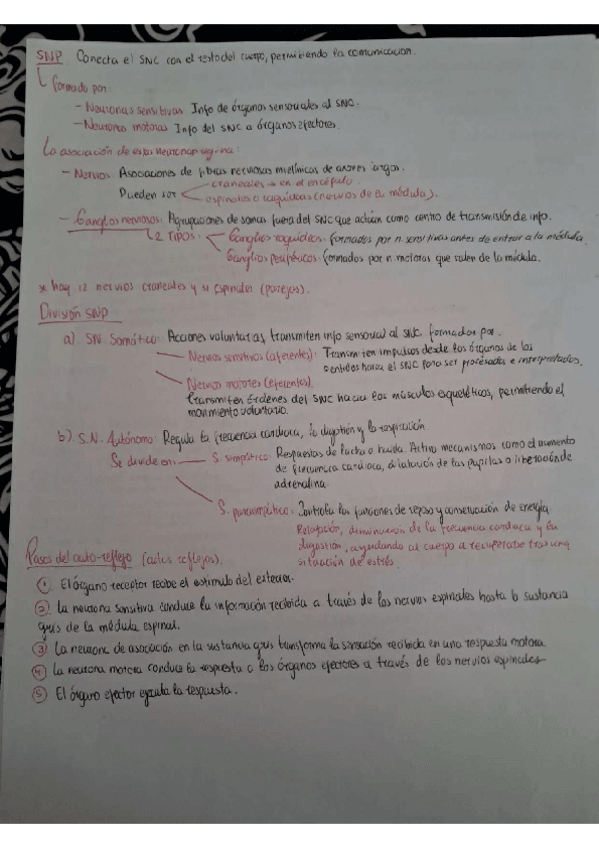 SNP Conecta el SNC con el resto del cuerpo, permitiendo la comunicación.
formado por:
- Neuronas sensitivas Info de órganos sensoriales al SNC.
- Neuronas motoras Info del SNC a órganos efectores.
La asociación de estas neuronas origina:
- Nervios: Asociaciones de fibras nerviosas mielínicas de axones largos.
Pueden ser craneales → en el encéfalo.
espinales o raquídeos (nervios de la médula).
- Ganglios nerviosos: Agrupaciones de somas fuera del SNC que actúan como centro de transmisión de info.
2 TIPOS: Ganglios raquídeos: formados por n. sensitivas antes de entrar a la médula.
Ganglios periféricos: formados por n. motoras que salen de la médula.
* hay 12 nervios craneales y 31 espinales (parejos).
División SNP
a) SN Somático: Acciones voluntarias, transmiten info sensorial al SNC, formados por:
Nervios sensitivos (aferentes): Transmiten impulsos desde los órganos de los
sentidos hacia el SNC para ser procesados e interpretados.
Nervios motores (eferentes).
Transmiten órdenes del SNC hacia los músculos esqueléticos, permitiendo el
movimiento voluntario.
b) S.N. Autónomo: Regula la frecuencia cardiaca, la digestión y la respiración.
Se divide en: S. simpático: Respuestas de lucha o huida. Activa mecanismos como el aumento
de frecuencia cardiaca, dilatación de las pupilas o liberación de
adrenalina.
S. parasimpático: Controla las funciones de reposo y conservación de energía
Relajación, disminución de la frecuencia cardiaca y la
digestión, ayudando al cuerpo a recuperarse tras una
situación de estrés.
Pasos del acto-reflejo (actos reflejos).
1. El órgano receptor recibe el estímulo del exterior.
2. La neurona sensitiva conduce la información recibida a través de los nervios espinales hasta la sustancia
gris de la médula espinal.
3. La neurona de asociación en la sustancia gris transforma la sensación recibida en una respuesta motora.
4. La neurona motora conduce la respuesta a los órganos efectores a través de los nervios espinales
5. El órgano efector ejecuta la respuesta.